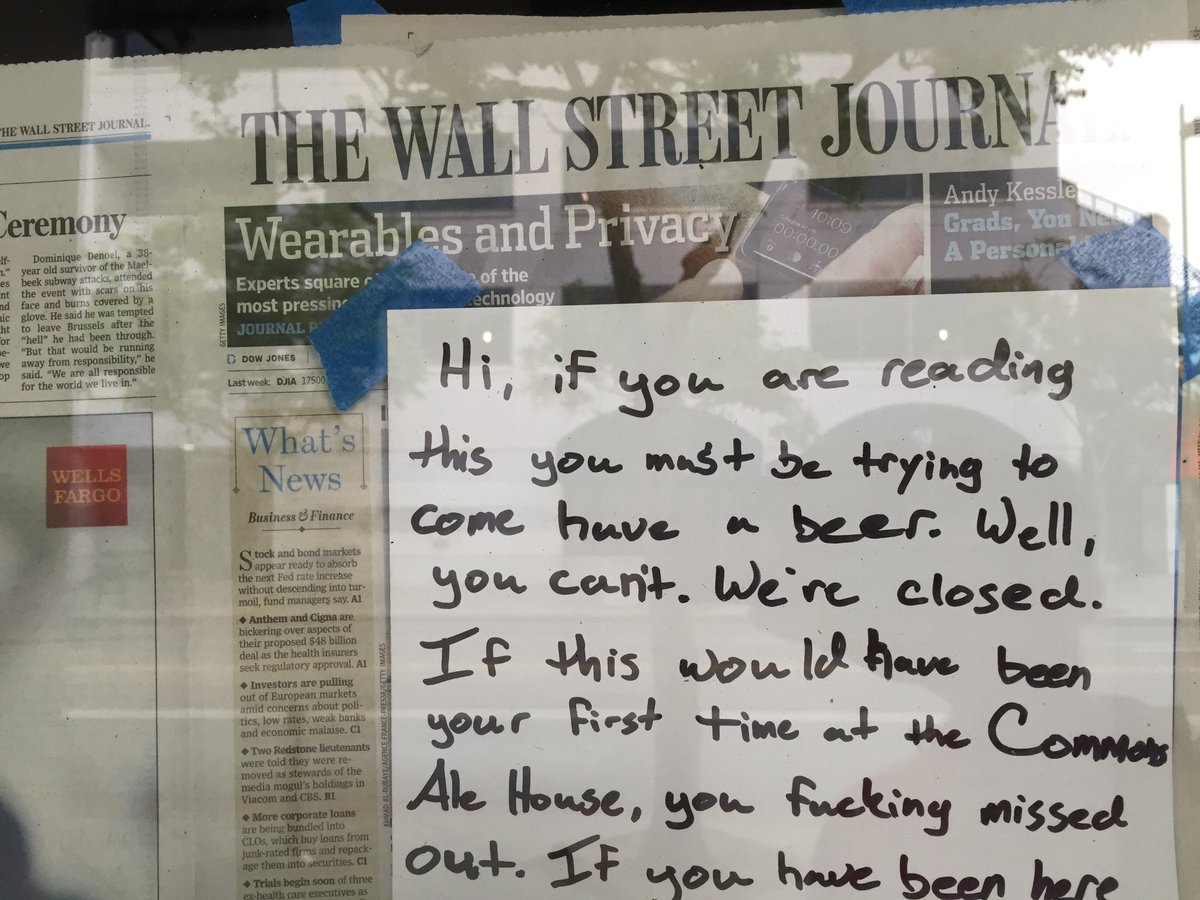 THE WALL STREET JOURNAL.
Ceremony
Dominique Denoel, a 38-
year old survivor of the Mael-
beek subway attacks, attended
the event with scars on his
face and burns covered by a
glove. He said he was tempted
to leave Brussels after the
"hell" he had been through.
"But that would be running
away from responsibility," he
said. "We are all responsible
for the world we live in."
WELLS
FARGO
THE WALL STREET JOURNAL.
Wearables and Privacy
Experts square of the
most pressing technology
JOURNAL
GETTY IMAGES
10:09
00:00.00
Andy Kessle
Grads, You Ne
A Persona
DOW JONES
Last week: DJIA 17500
What's
News
Business & Finance
Stock and bond markets
appear ready to absorb
the next Fed rate increase
without descending into tur-
moil, fund managers say. A1
◆ Anthem and Cigna are
bickering over aspects of
their proposed $48 billion
deal as the health insurers
seek regulatory approval. A1
◆ Investors are pulling
out of European markets
amid concerns about poli-
tics, low rates, weak banks
and economic malaise. C1
◆ Two Redstone lieutenants
were told they were re-
moved as stewards of the
media mogul's holdings in
Viacom and CBS. B1
◆ More corporate loans
are being bundled into
CLOs, which buy loans from
junk-rated firms and repack-
age them into securities. C1
◆ Trials begin soon of three
ex-health care executives as
AHMAD AL-RUBAYE/AGENCE FRANCE-PRESSE/GETTY IMAGES
Hi, if you are reading
this you must be trying to
come have a beer. Well,
you can't. We're closed.
If this would have been
your first time at the Commons
Ale House, you fucking missed
out. If you have been here